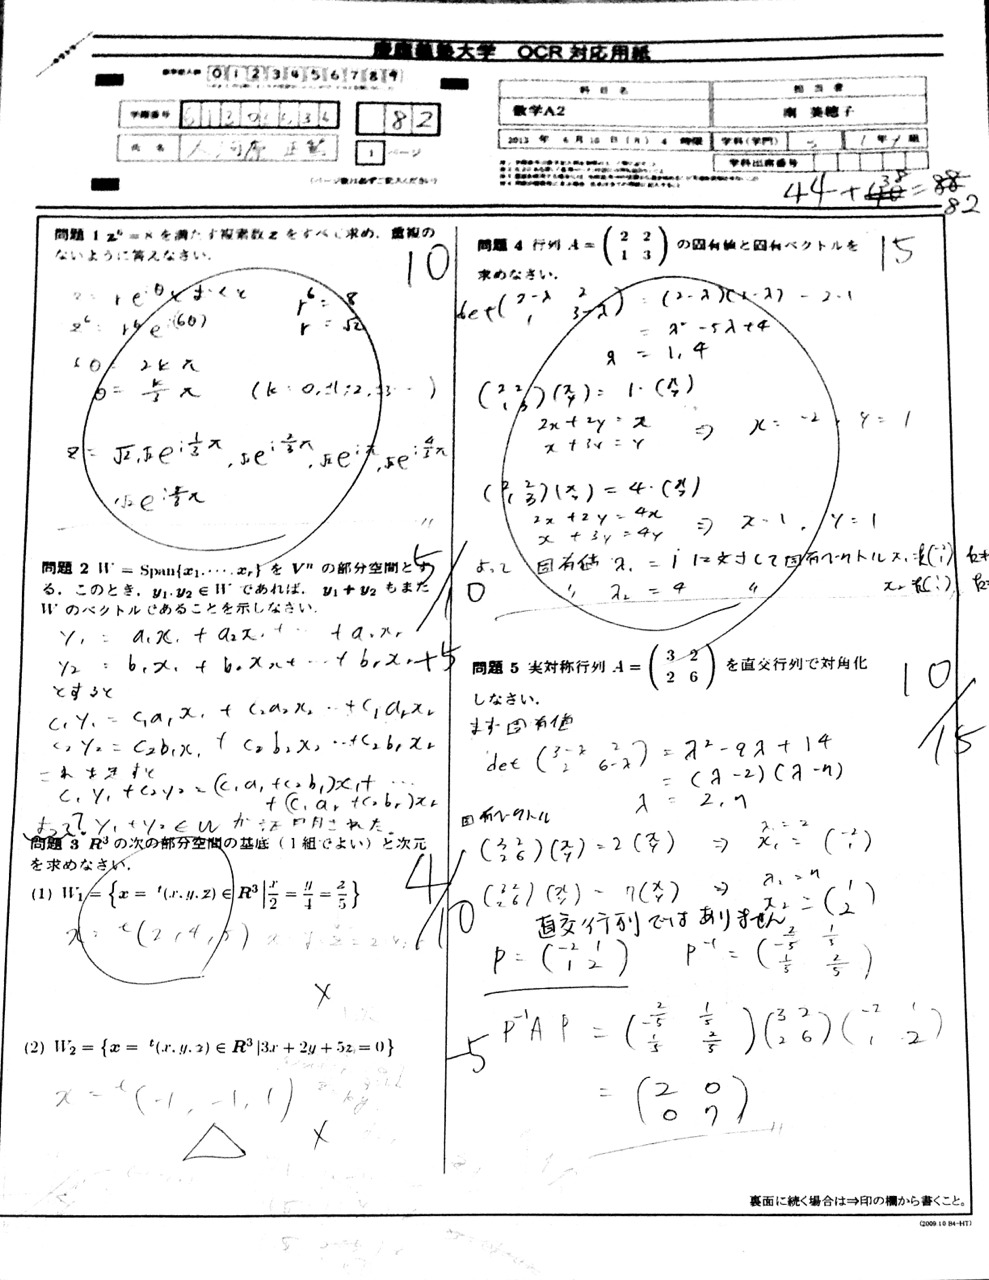 慶應義塾大学 OCR 対応用紙
0 1 2 3 4 5 6 7 8 9
学籍番号
82
氏名
1 ページ
(ページ数は必ずご記入ください)
科目名
担当者
数学A2
南 美穂子
2013 年 6月10日(月) 4 時限
学科(学門)
1年
組
学科出席番号
44 + 38 = 82
問題 1 z⁶ = 8 を満たす複素数 z をすべて求め, 重複の
ないように答えなさい.
10
z = re^{iθ} とおくと
r⁶ = 8
z⁶ = r⁶e^{i(6θ)}
r = √2
6θ = 2kπ
θ = k/3 π (k: 0, ±1, ±2, ±3 ...)
z = √2, √2e^{i 1/3 π}, √2e^{i 2/3 π}, √2e^{iπ}, √2e^{i 4/3 π}
√2e^{i 5/3 π}
問題 2 W = Span{x₁, ..., xᵣ} を Vⁿ の部分空間とす
る. このとき, y₁, y₂ ∈ W であれば, y₁ + y₂ もまた
W のベクトルであることを示しなさい.
5/10
y₁ = a₁x₁ + a₂x₂ + ... + aᵣxᵣ
y₂ = b₁x₁ + b₂x₂ + ... + bᵣxᵣ
+5
とすると
c₁y₁ = c₁a₁x₁ + c₁a₂x₂ ... + c₁aᵣxᵣ
c₂y₂ = c₂b₁x₁ + c₂b₂x₂ ... + c₂bᵣxᵣ
これを足すと
c₁y₁ + c₂y₂ = (c₁a₁ + c₂b₁)x₁ + ...
+ (c₁aᵣ + c₂bᵣ)xᵣ
よって? y₁ + y₂ ∈ W が証明された。
問題 3 R³ の次の部分空間の基底 (1 組でよい) と次元
を求めなさい.
4/10
(1) W₁ = {x = ᵗ(x, y, z) ∈ R³ | x/2 = y/4 = z/5}
x = ᵗ(2, 4, 5)
×
(2) W₂ = {x = ᵗ(x, y, z) ∈ R³ | 3x + 2y + 5z = 0}
x = ᵗ(-1, -1, 1)
△
×
問題 4 行列 A = (2 2 / 1 3) の固有値と固有ベクトルを
求めなさい.
15
det(2-λ 2 / 1 3-λ) = (2-λ)(3-λ) - 2·1
= λ² - 5λ + 4
λ = 1, 4
(2 2 / 1 3)(x / y) = 1·(x / y)
2x + 2y = x
x + 3y = y
⇒ x = -2, y = 1
(2 2 / 1 3)(x / y) = 4·(x / y)
2x + 2y = 4x
x + 3y = 4y
⇒ x = 1, y = 1
よって 固有値 λ₁ = 1 に対して固有ベクトル x₁
〃 λ₂ = 4 〃 x₂
問題 5 実対称行列 A = (3 2 / 2 6) を直交行列で対角化
しなさい.
10/15
まず固有値
det(3-λ 2 / 2 6-λ) = λ² - 9λ + 14
= (λ-2)(λ-7)
λ = 2, 7
固有ベクトル
(3 2 / 2 6)(x / y) = 2(x / y) ⇒ λ₁ = 2 x₁ = (-2 / 1)
(3 2 / 2 6)(x / y) = 7(x / y) ⇒ λ₂ = 7 x₂ = (1 / 2)
直交行列ではありません
P = (-2 1 / 1 2) P⁻¹ = (-2/5 1/5 / 1/5 2/5)
-5
P⁻¹AP = (-2/5 1/5 / 1/5 2/5)(3 2 / 2 6)(-2 1 / 1 2)
= (2 0 / 0 7)
裏面に続く場合は⇒印の欄から書くこと。
(2009.10 B4-HT)